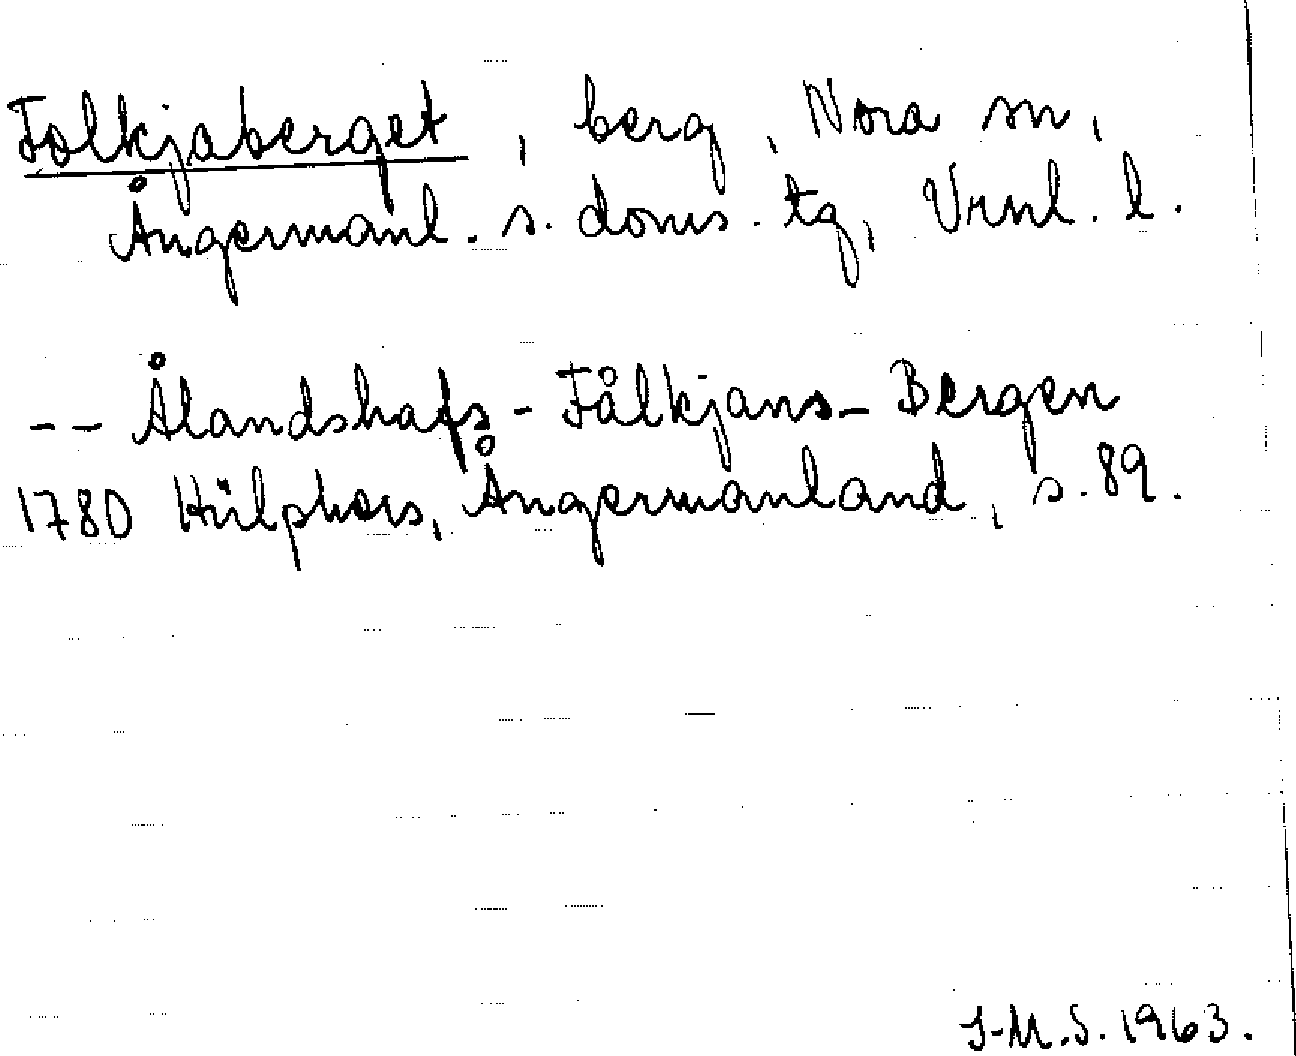 Folkjaberget, berg, Nora sn,
Ångermanl. s. doms. tg, Vrnl. l.
-- Ålandshafs-Fålkjans-Bergen
1780 Hülphers, Ångermanland, s. 89.
I-M.S. 1963.